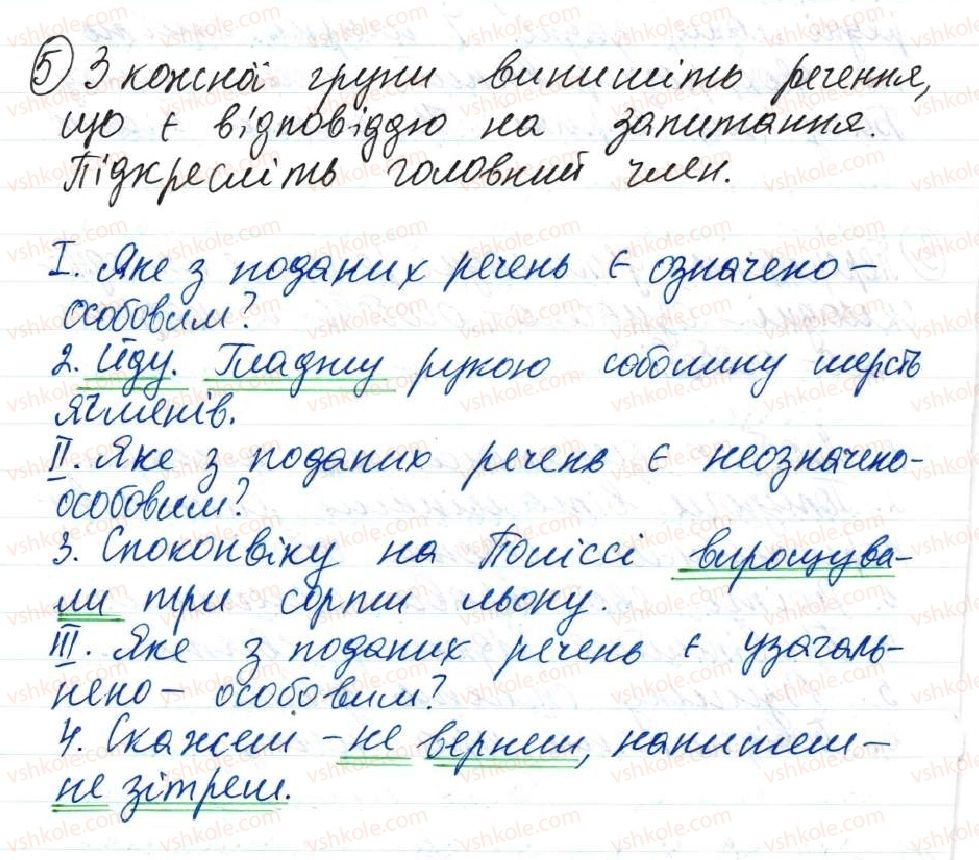 5 З кожної групи випишіть речення,
що є відповіддю на запитання.
Підкресліть головний член.
I. Яке з поданих речень є означено-
особовим?
2. Йду. Гладжу рукою соболину шерсть
ячменів.
II. Яке з поданих речень є неозначено-
особовим?
3. Споконвіку на Поліссі вирощува-
ли три сорти льону.
III. Яке з поданих речень є узагаль-
нено - особовим?
4. Скажеш - не вернеш, напишеш -
не зітреш.